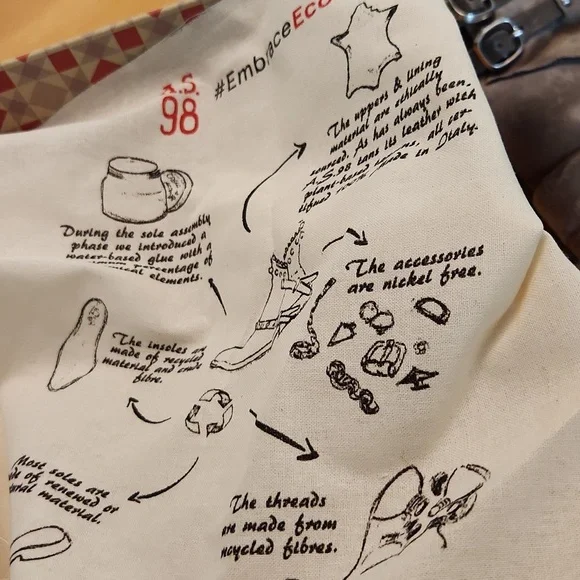 #EmbraceEco
A.S.
98
The uppers & lining
material are ethically
sourced. As has always been,
A.S.98 tans its leather with
plant-based all cer-
made in Italy.
During the sole assembly
phase we introduced a
water-based glue with a
percentage of
elements.
The accessories
are nickel free.
The insoles are
made of recycled
material and
fibre.
Most soles are
of renewed or
material.
The threads
are made from
recycled fibres.